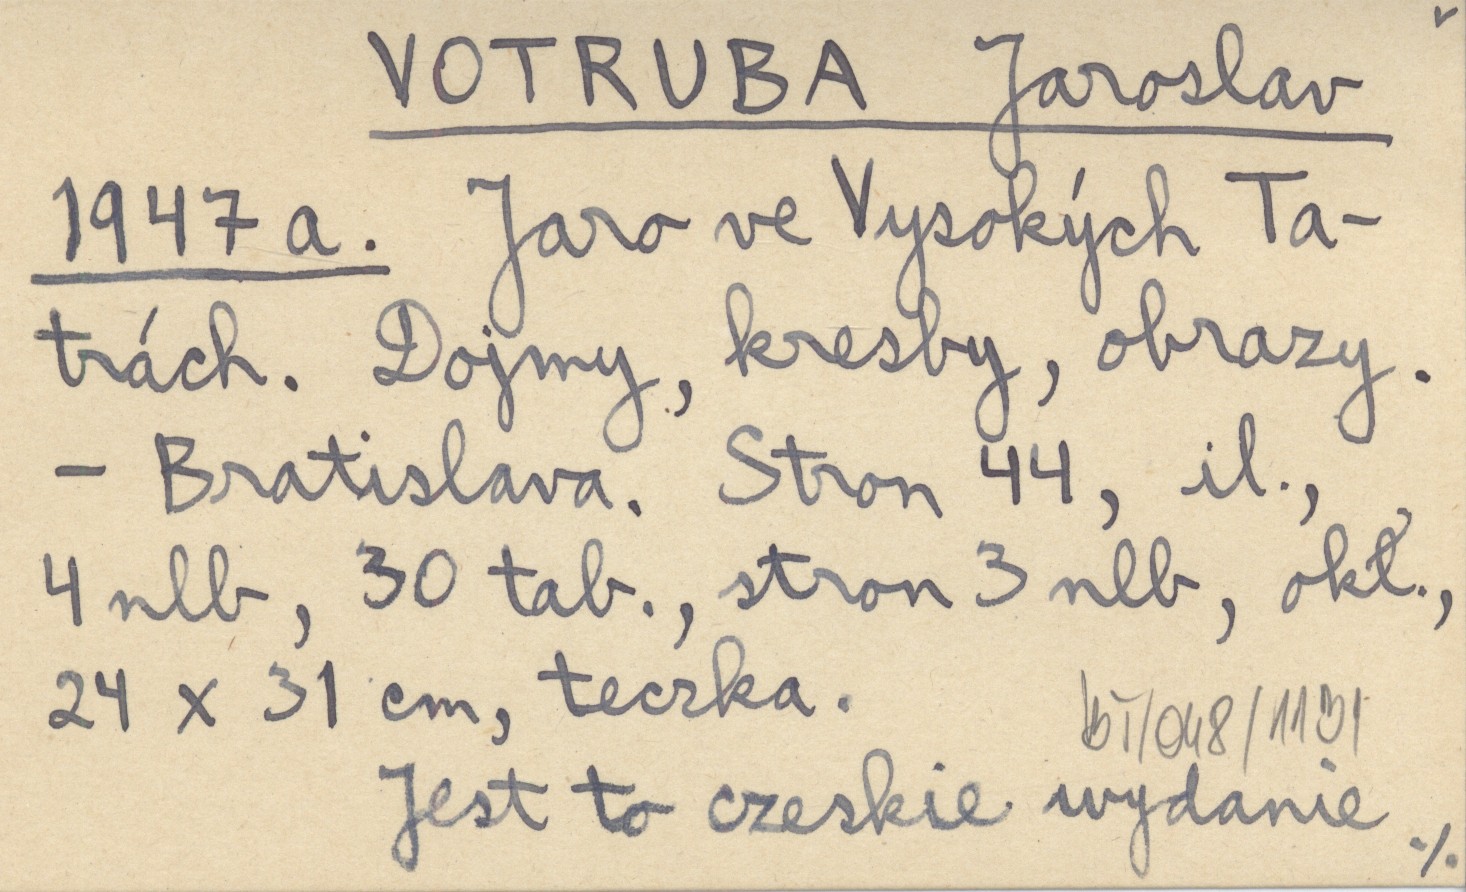 VOTRUBA Jaroslav
1947a. Jaro ve Vysokých Ta-
trách. Dojmy, kresby, obrazy.
- Bratislava. Stron 44, il.,
4 nlb, 30 tab., stron 3 nlb, okł.,
24 x 31 cm, teczka.
Jest to czeskie wydanie ./.